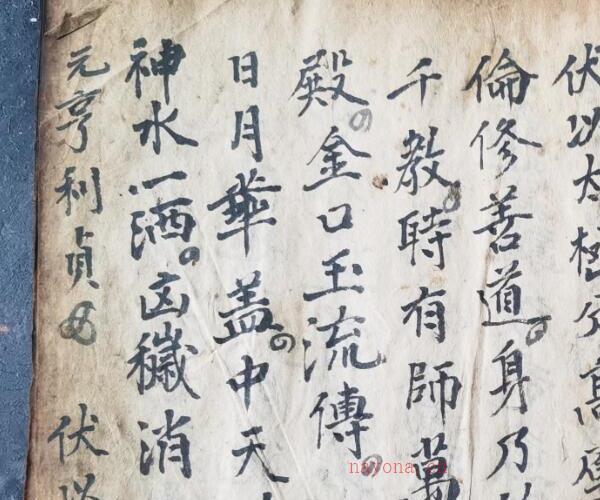 伏以太極分高厚
倫修善道身乃
千教時有師萬
殿金口玉流傳
日月華盖中天
神水一洒凶穢消
元亨利貞 伏以
nayona.cn